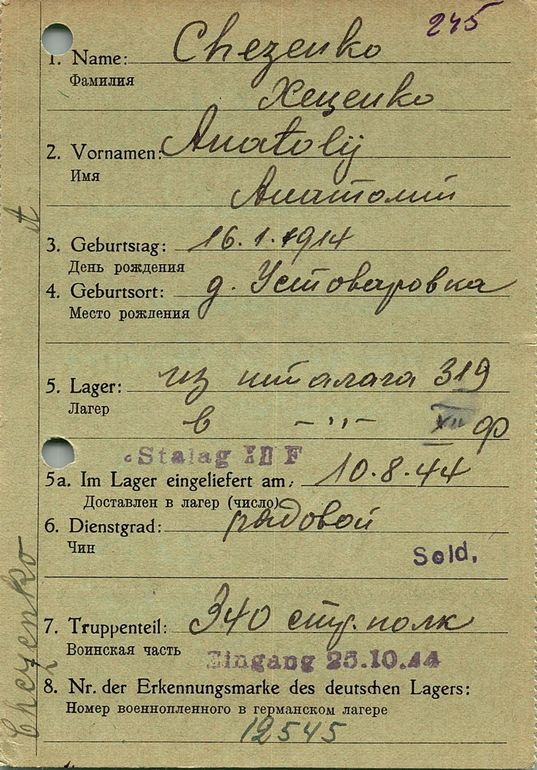 245
1. Name: Chezenko
Фамилия
Хеценко
2. Vornamen: Anatolij
Имя
Анатолий
A
3. Geburtstag: 16.1.1914
День рождения
4. Geburtsort: д. Устоваровка
Место рождения
5. Lager: из шталага 319
Лагер
в –"– XII ф
Stalag XII F
5a. Im Lager eingeliefert am: 10.8.44
Доставлен в лагер (число)
6. Dienstgrad: рядовой
Чин
Sold.
7. Truppenteil: 340 стр. полк
Воинская часть
Eingang 25.10.44
8. Nr. der Erkennungsmarke des deutschen Lagers:
Номер военнопленного в германском лагере
12545
Chezenko